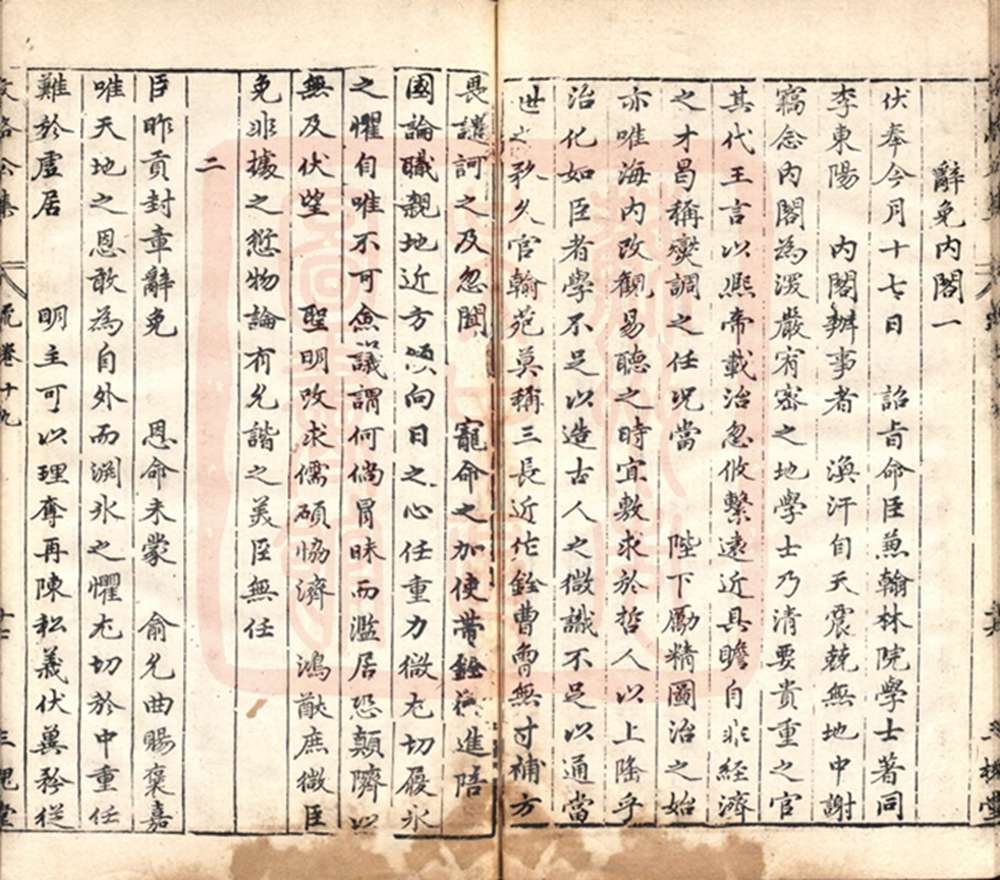 辭免內閣一
伏奉今月十七日 詔旨命臣兼翰林院學士著同
李東陽 內閣辦事者 渙汗自天震兢無地中謝
竊念內閣為深嚴宥密之地學士乃清要貴重之官
其代王言以熙帝載治忽攸繫遠近具瞻自非經濟
之才曷稱爕調之任況當 陛下勵精圖治之始
亦唯海內改觀易聽之時宜敷求於哲人以上隆乎
治化如臣者學不足以造古人之微識不足以通當
世之務久官翰苑莫稱三長近佐銓曹曾無寸補方
畏譴訶之及忽聞 寵命之加使帶銓衡進陪
國論職親地近方傾向日之心任重力微尤切履氷
之懼自唯不可僉議謂何倘冒昧而濫居恐顛隮以
無及伏望 聖明改求儒碩恊濟 鴻猷庶微臣
免非據之愆物論有允諧之美臣無任
二
臣昨貢封章辭免 恩命未蒙 俞允曲賜褒嘉
唯天地之恩敢為自外而淵氷之懼尤切於中重任
難於虛居 明主可以理奪再陳私義伏冀矜從
公集 疏卷十九